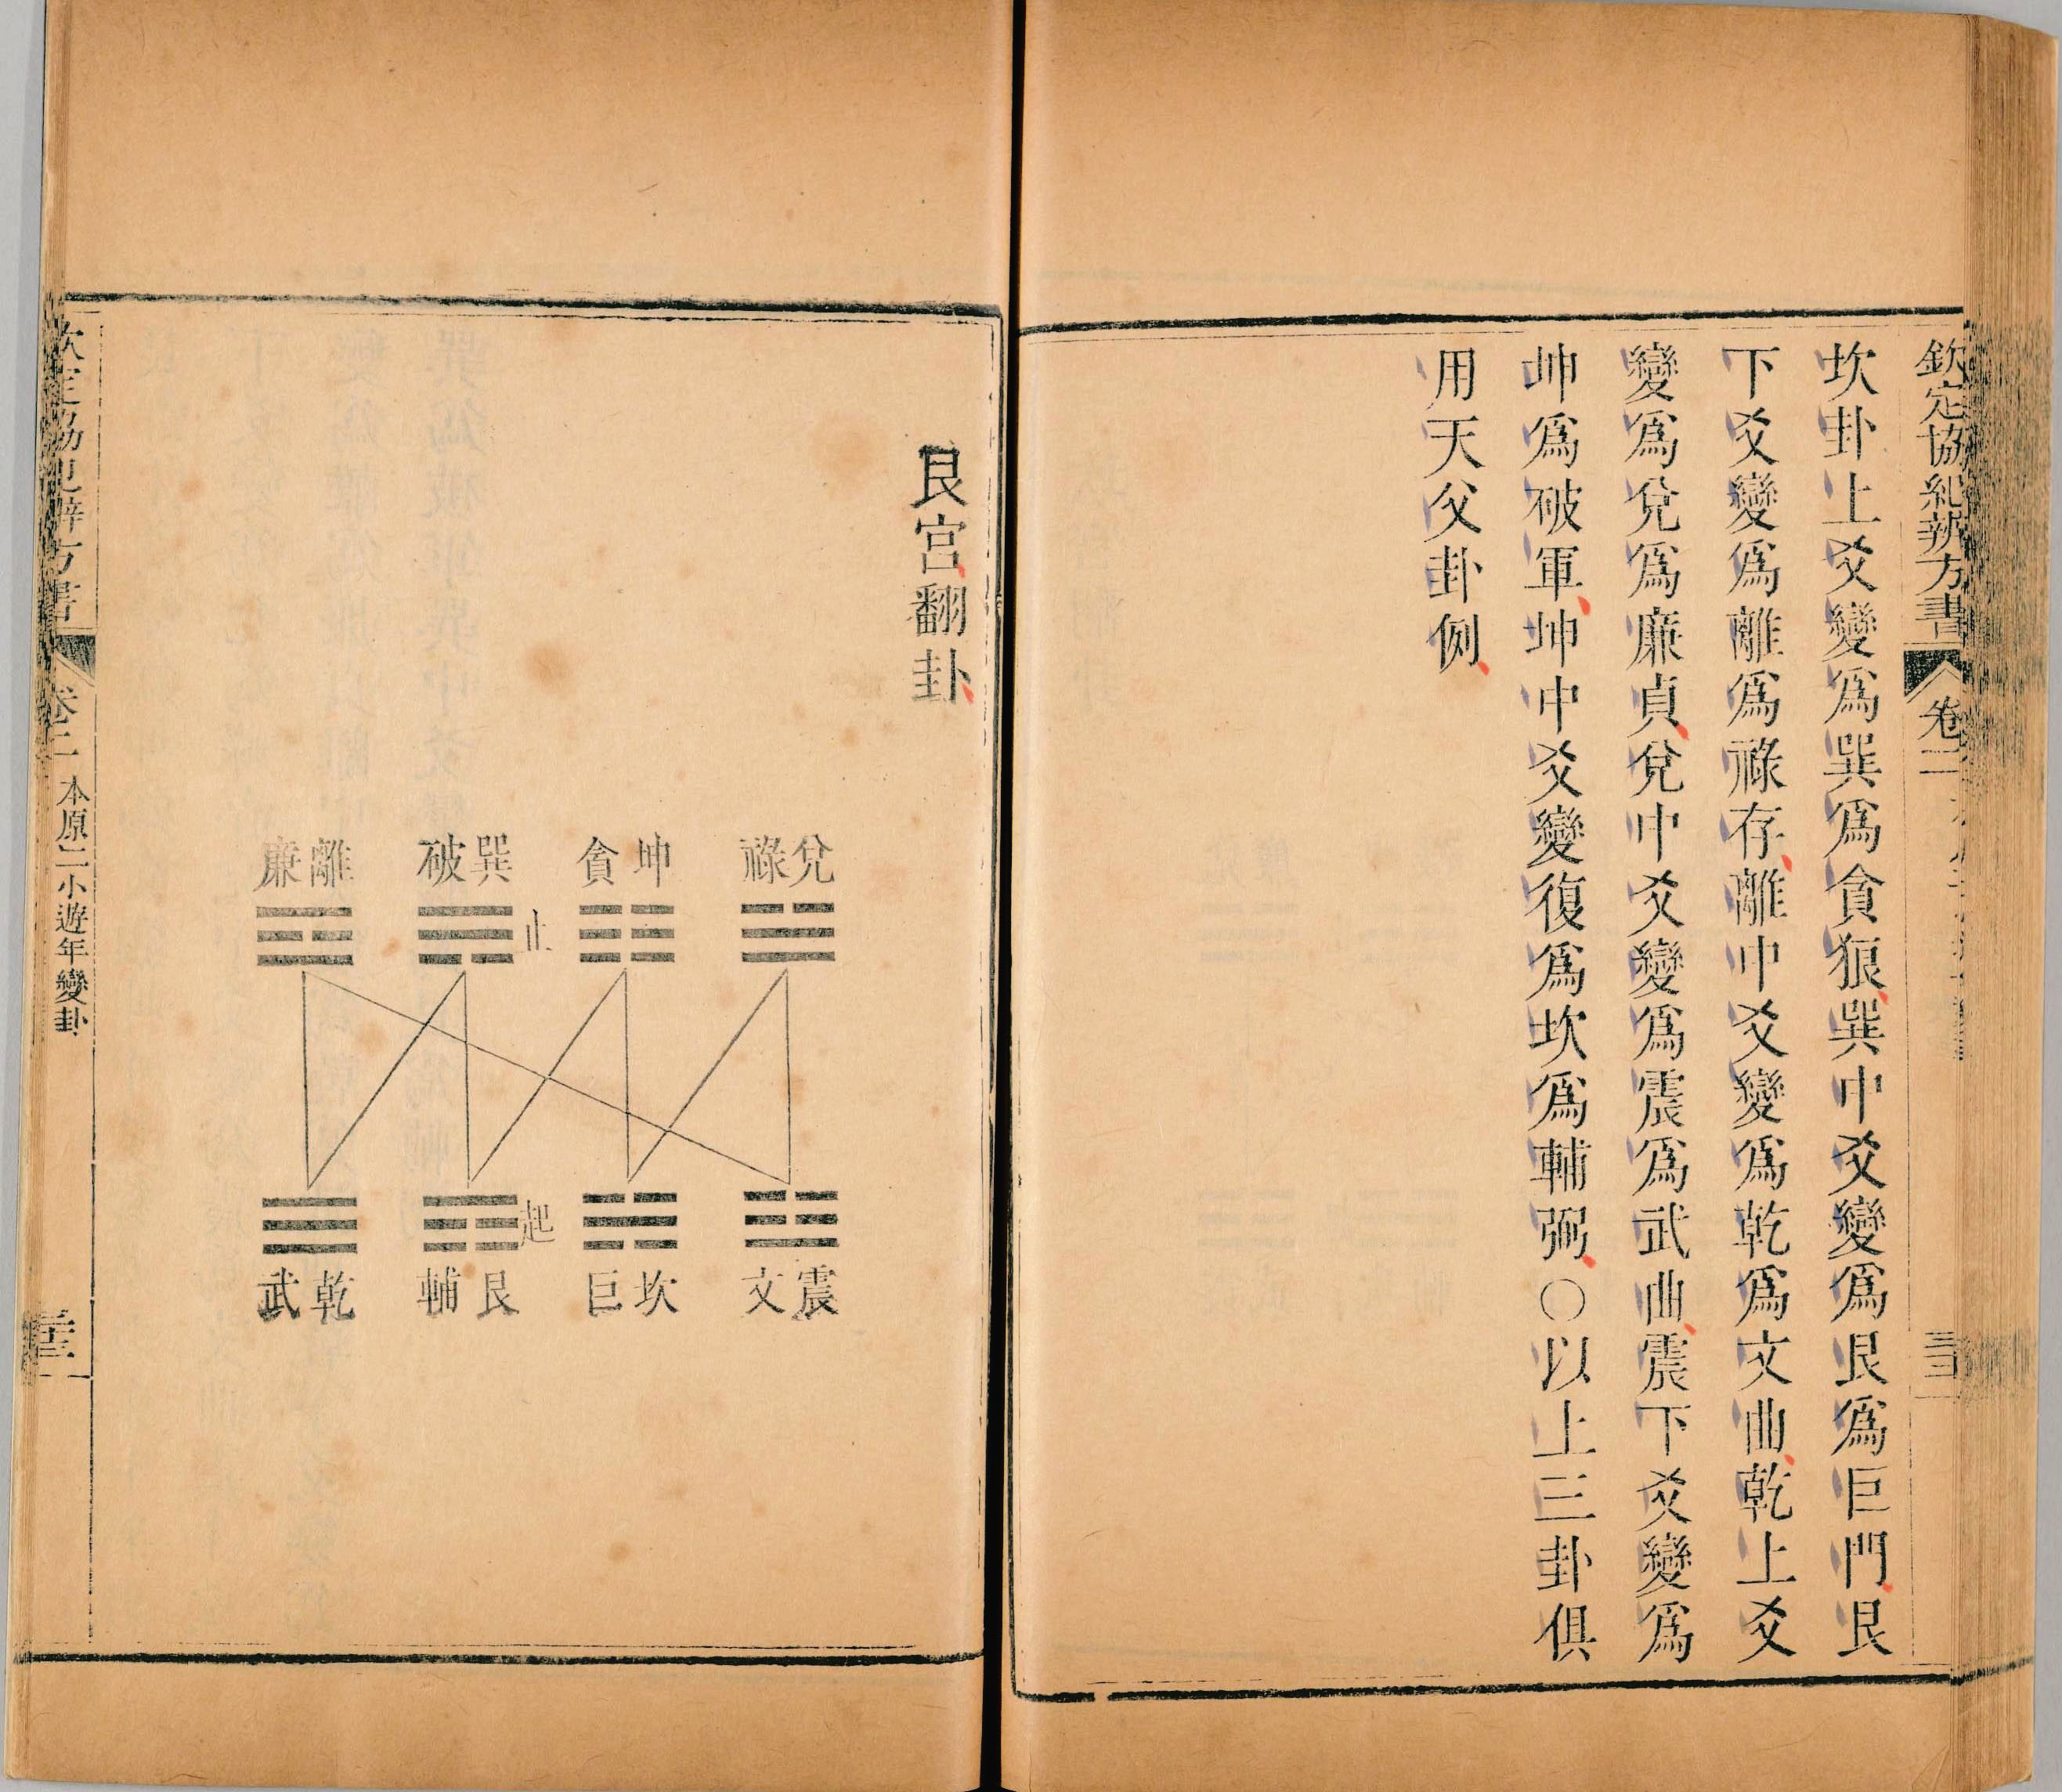 欽定協紀辨方書 卷二
坎卦上爻變爲巽爲貪狼巽中爻變爲艮爲巨門艮
下爻變爲離爲祿存離中爻變爲乾爲文曲乾上爻
變爲兌爲廉貞兌中爻變爲震爲武曲震下爻變爲
坤爲破軍坤中爻變復爲坎爲輔弼○以上三卦俱
用天父卦例
艮宮翻卦
兌祿
坤貪
巽破
離廉
止
起
震文
坎巨
艮輔
乾武
欽定協紀辨方書 卷二 本原二小遊年變卦